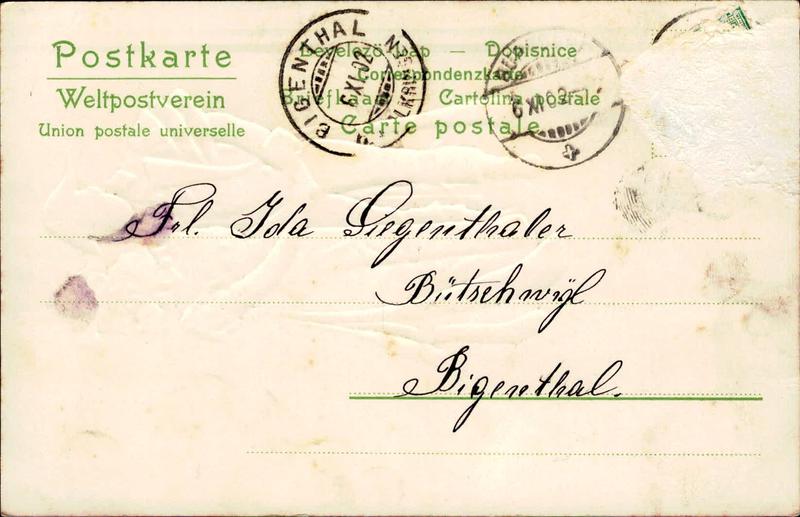 Postkarte
Weltpostverein
Union postale universelle
Levelező-Lap — Dopisnice
Correspondenzkarte
Cartolina postale
Carte postale
BIGENTHAL
6 XI 02
6 XI 02
Frl. Ida Siegenthaler
Bütschwyl
Bigenthal.